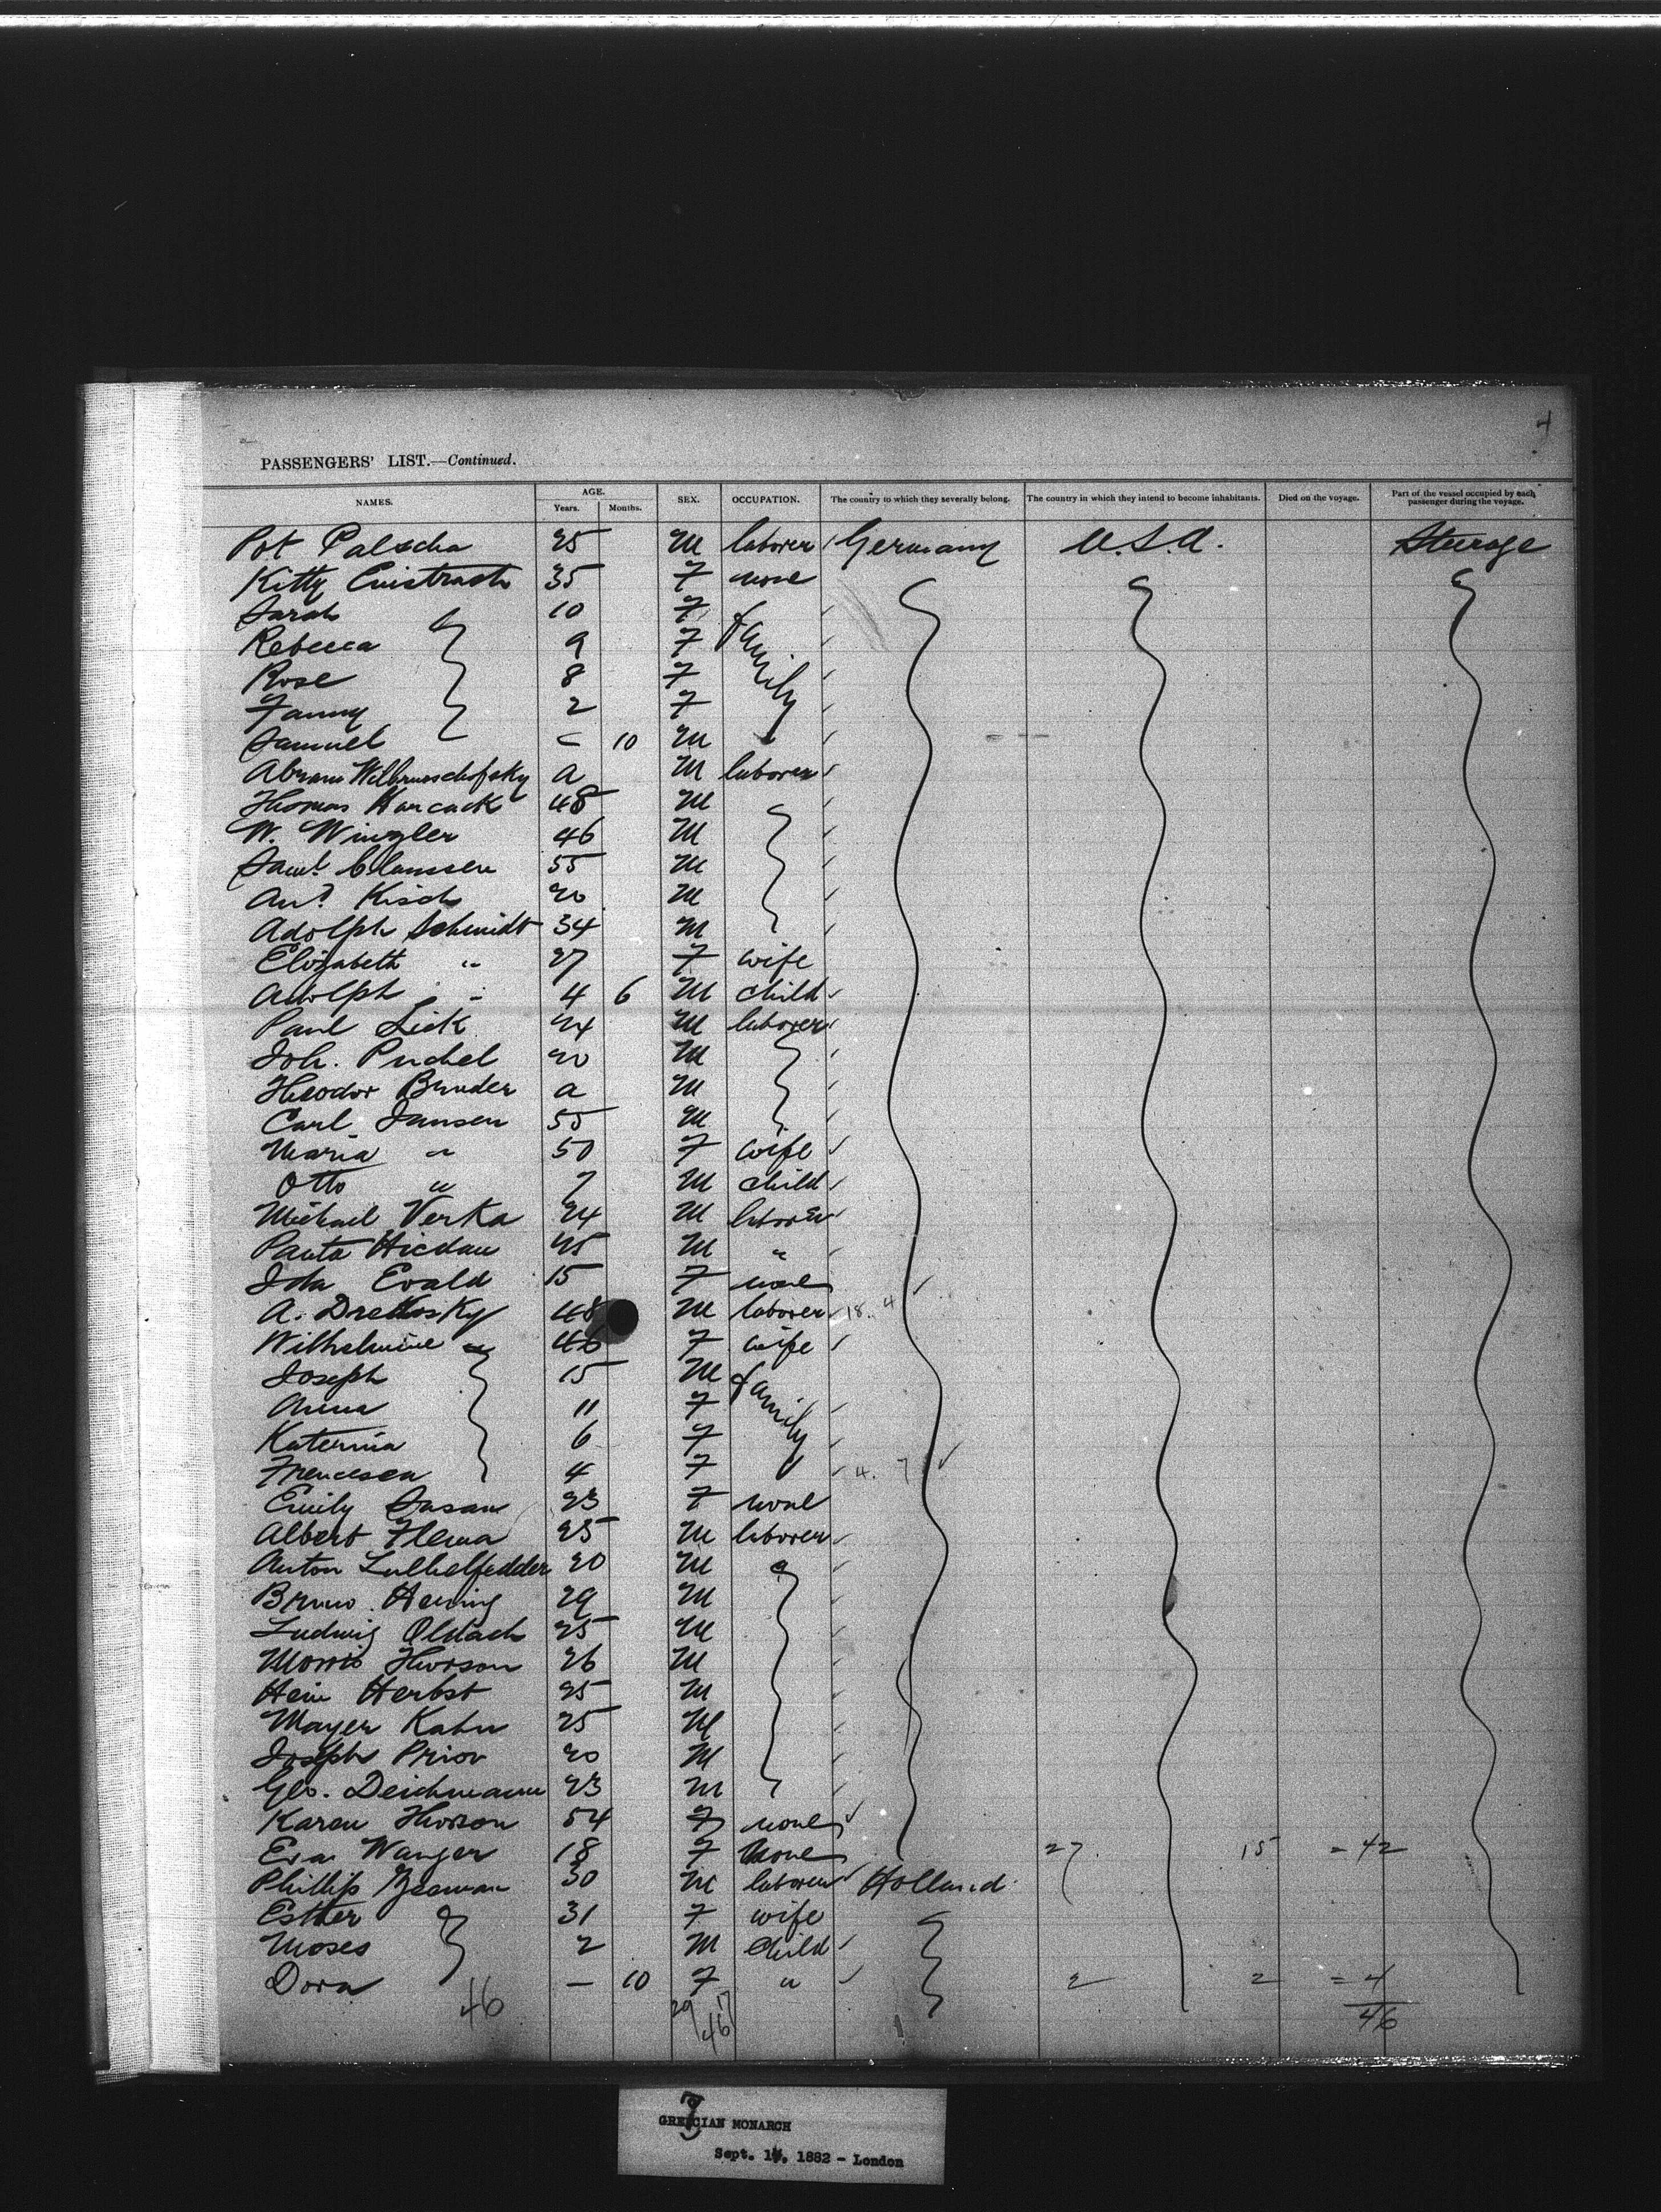 4
PASSENGERS' LIST.—Continued.
NAMES. AGE. Years. Months. SEX. OCCUPATION. The country to which they severally belong. The country in which they intend to become inhabitants. Died on the voyage. Part of the vessel occupied by each passenger during the voyage.
Pot Palscha 25 M laborer Germany U.S.A. Steerage
Kitty 35 F none
Sarah 10 F family
Rebecca 9 F
Rose 8 F
Fanny 2 F
Samuel - 10 M
Abram a M laborer
Thomas Karcack 48 M
W. Wingler 46 M
Saml Claussen 55 M
Ant Kisch 20 M
Adolph Schmidt 34 M
Elizabeth " 27 F wife
Adolph " 4 6 M child
Paul Lick 24 M laborer
Joh. Puchel 20 M
Theodor Bruder a M
Carl Jansen 55 M
Maria " 50 F wife
Otto " 7 M child
Michael Verka 24 M laborer
Hicdau 45 M "
Ida Evald 15 F none
A. Drettosky 48 M laborer 18. 4
Wilhelmine " 46 F wife
Joseph 15 M family
Anna 11 F
Katerina 6 F
Francesca 4 F 4. 7
Emily Sasam 23 F none
Albert Flema 25 M laborer
Anton 20 M
Bruno Hening 29 M
Ludwig Oldach 25 M
Morris Thorson 26 M
Hein Herbst 25 M
Mayer Kahn 25 M
Joseph Prior 20 M
Geo. Deichmann 23 M
Karen Thorson 54 F none
Eva Wanger 18 F None 27 15 = 42
Phillip 30 M laborer Holland
Esther 31 F wife
Moses 2 M Child
Dora — 10 F " 2 2 = 4
46 29 17 46 46
GRECIAN MONARCH
Sept. 1, 1882 - London